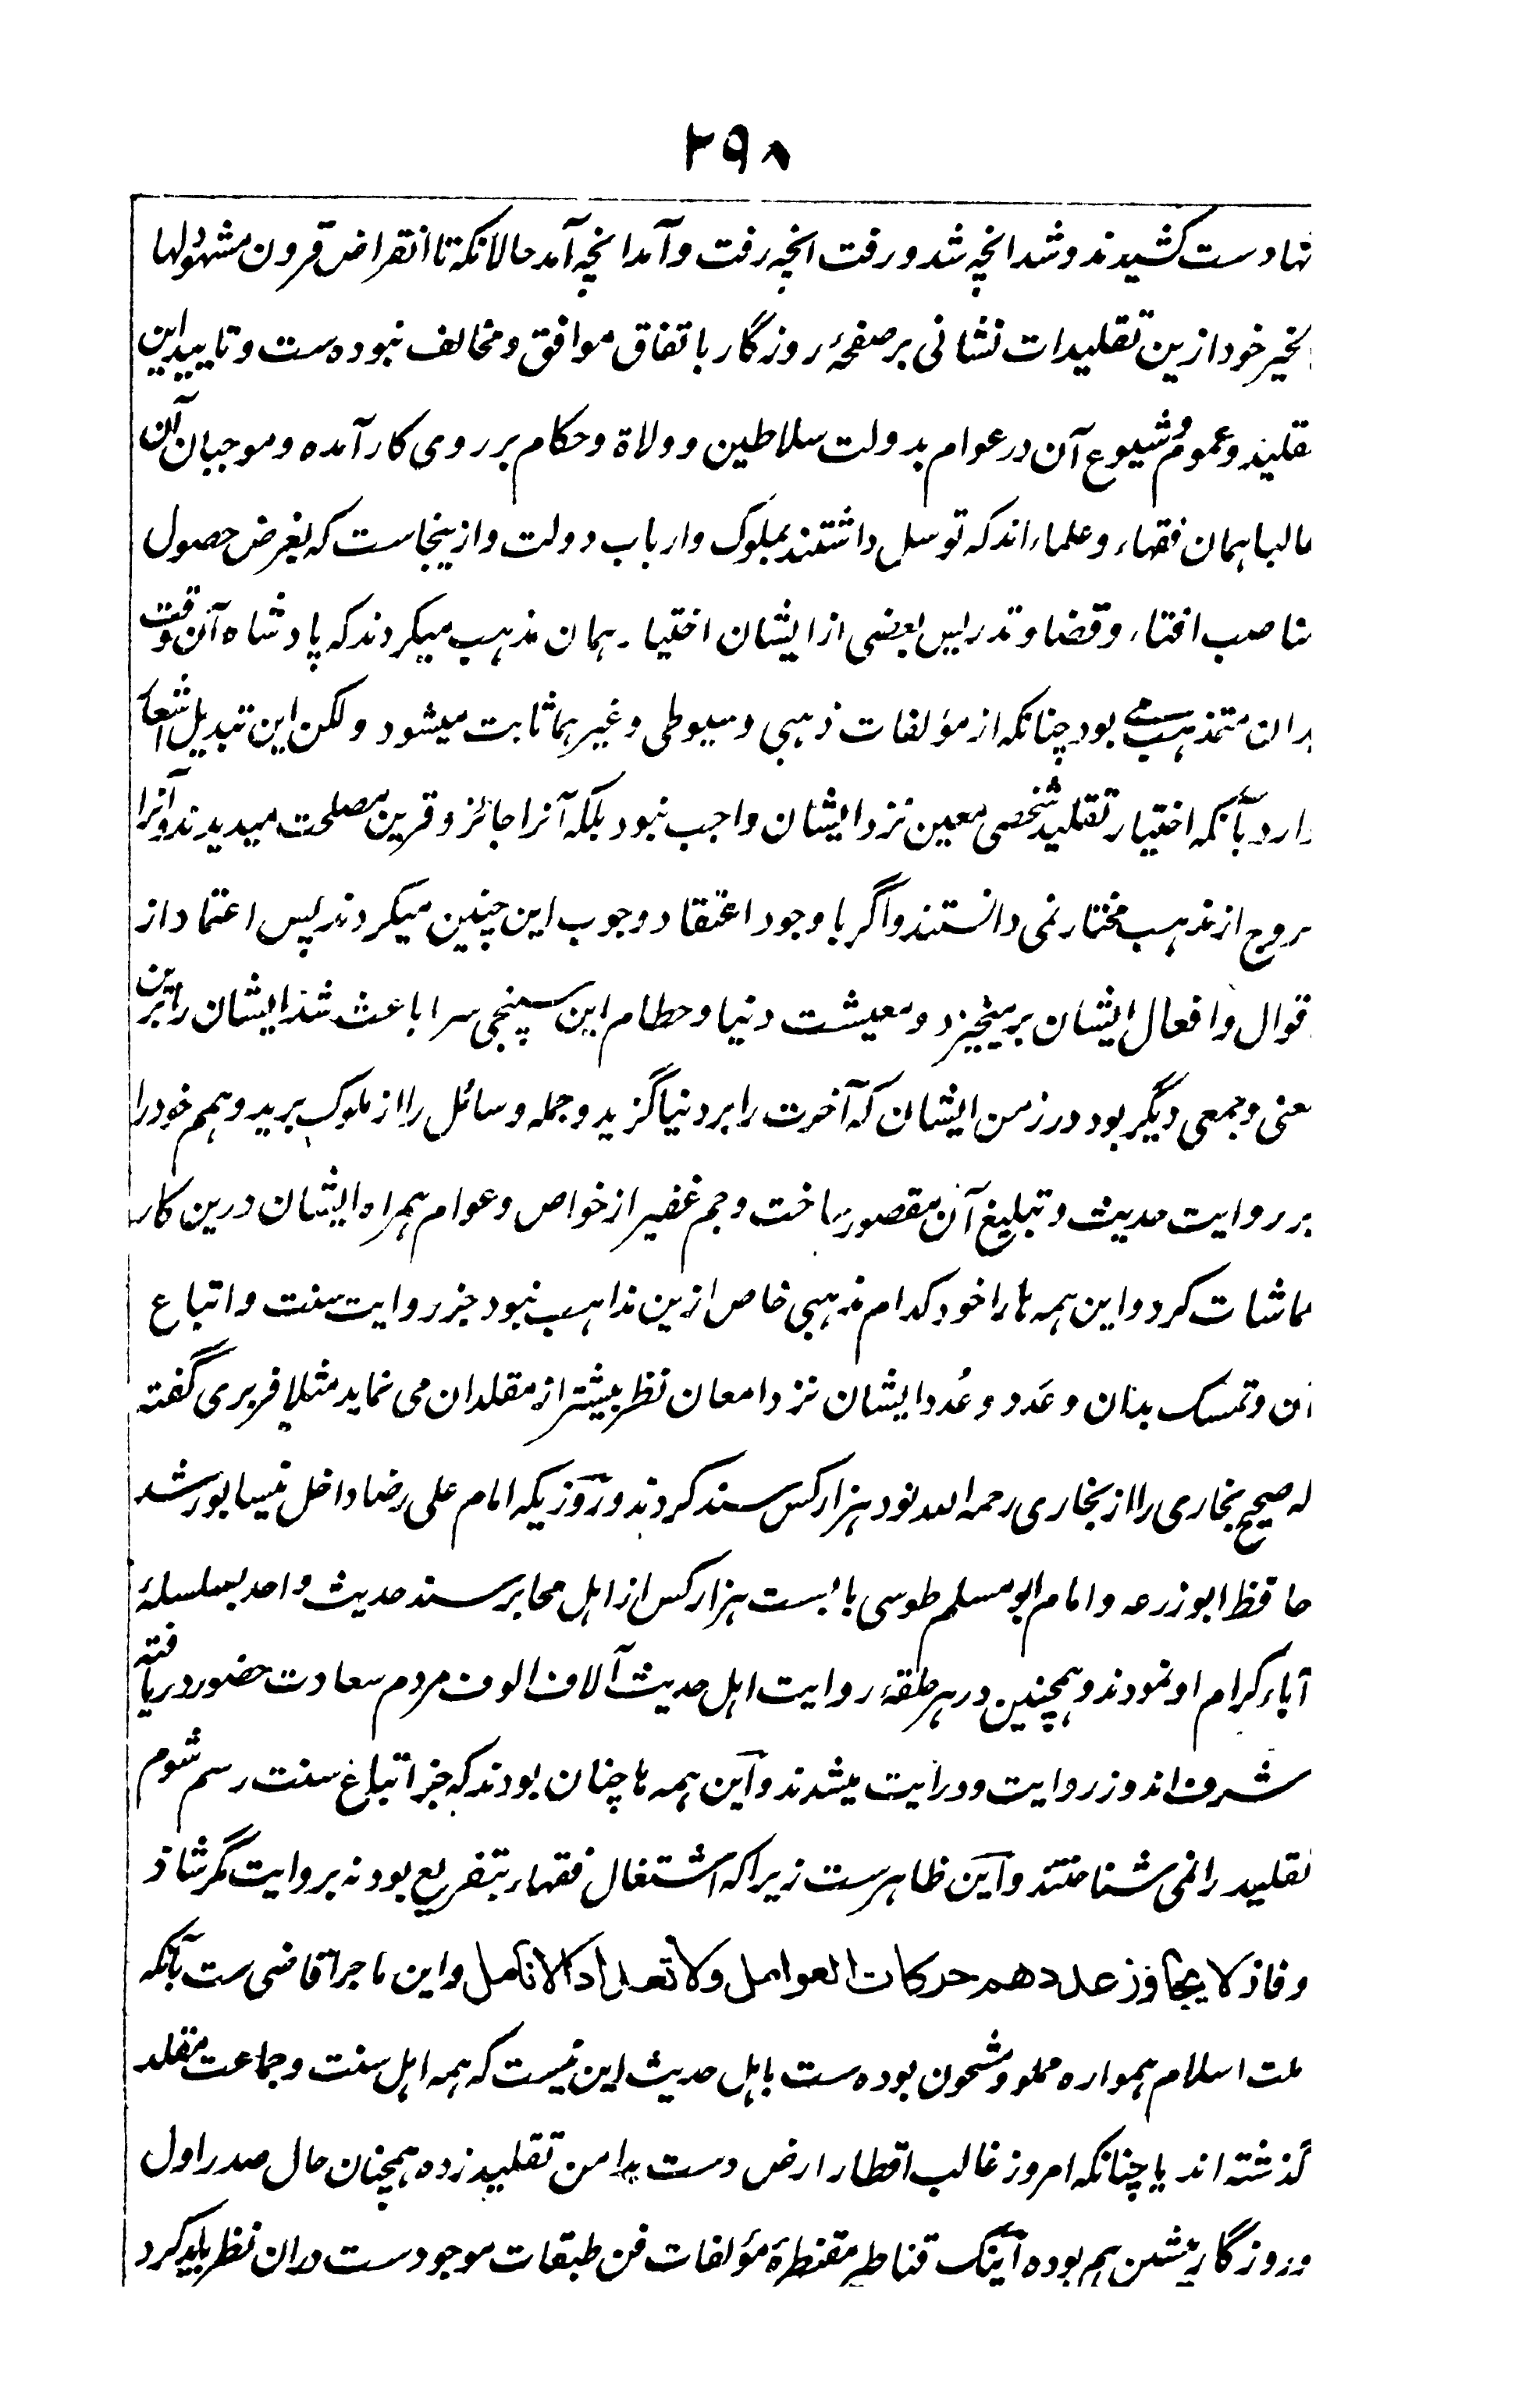 ۲۹۸
نها دست کشیدند و شد انچه شد و رفت انچه رفت و آمد انچه آمد حالانکه تا انقراض قرون مشهود لها
لخیر خود ازین تقلیدات نشانی بر صفحهٔ روزگار باتفاق موافق و مخالف نبوده ست و تایید این
قلید و عموم و شیوع آن در عوام بدولت سلاطین و ولاة و حکام بر روی کار آمده و موجبان آن
غالبا همان فقهاء و علماء اند که توسل داشتند بملوک و ارباب دولت و ازینجاست که بغرض حصول
ناصب افتاء و قضا و تدریس بعضی از ایشان اختیار همان مذهب میکردند که پادشاه آن وقت
بدان متمذهب می بود چنانکه از مؤلفات ذهبی و سیوطی و غیرهما ثابت میشود و لکن این تبدیل اشعار
دارد بآنکه اختیار تقلید شخصی معین نزد ایشان واجب نبود بلکه آنرا جائز و قرین مصلحت میدیدند و آنرا
روج از مذهب مختار نمی دانستند و اگر با وجود اعتقاد وجوب این چنین میکردند پس اعتماد از
قوال و افعال ایشان برمیخیزد و معیشت دنیا و حطام این سپنجی سرا باعث شد ایشان را برین
معنی و جمعی دیگر بود در زمن ایشان که آخرت را بر دنیا گزید و جمله وسائل را از ملوک برید و همم خود را
بر روایت حدیث و تبلیغ آن مقصور ساخت و جم غفیر از خواص و عوام همراه ایشان درین کار
ماشات کرد و این همه ها را خود کدام مذهبی خاص ازین مذاهب نبود جز روایت سنت و اتباع
آن و تمسک بدان و عَدد و عُدد ایشان نزد امعان نظر بیشتر از مقلدان می نماید مثلا فربری گفته
که صحیح بخاری را از بخاری رحمه الله نود هزار کس سند کردند و روزیکه امام علی رضا داخل نیسابور شد
حافظ ابو زرعه و امام ابو مسلم طوسی با بست هزار کس از اهل محابر سند حدیث واحد بسلسلهٔ
آباء کرام او نمودند و همچنین در هر حلقهٔ روایت اهل حدیث آلاف الوف مردم سعادت حضور دریافته
شرف اندوز روایت و درایت میشدند و این همه ها چنان بودند که جز اتباع سنت رسم شوم
تقلید را نمی شناختند و این ظاهرست زیرا که اشتغال فقهاء بتفریع بود نه بروایت مگر شاذ
و فاذ لا یجاوز عددهم حرکات العوامل ولا تعداد الانامل و این ماجرا قاضی ست بآنکه
ملت اسلام همواره مملو و مشحون بوده ست باهل حدیث این نیست که همه اهل سنت و جماعت مقلد
گذشته اند یا چنانکه امروز غالب اقطار ارض دست بدامن تقلید زده همچنان حال صدر اول
و روزگار پیشین هم بوده اینک قناطیر مقنطرهٔ مؤلفات فن طبقات موجودست دران نظر باید کرد